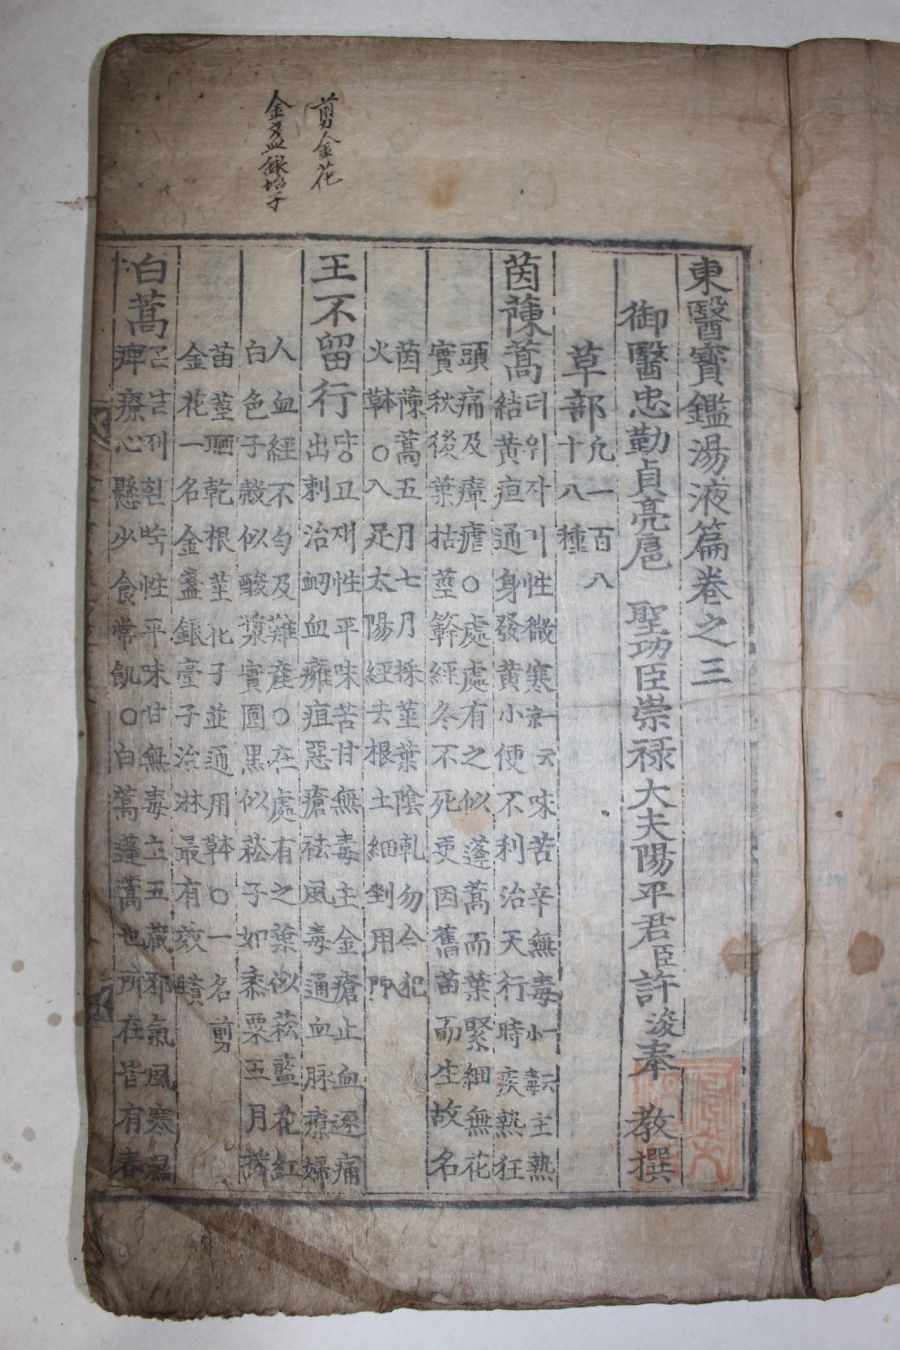 剪金花
金盞銀坮子
東醫寶鑑湯液篇卷之三
御醫忠勤貞亮扈 聖功臣崇祿大夫陽平君臣許浚奉 教撰
草部凡一百八
十八種
茵蔯蒿더위자기性微寒一云味苦辛無毒一云小毒主熱
結黃疸通身發黃小便不利治天行時疾熱狂
頭痛及瘴瘧○處處有之似蓬蒿而葉緊細無花
實秋後葉枯莖簳經冬不死更因舊苗而生故名
茵蔯蒿五月七月採莖葉陰乾勿令犯
火本草○入足太陽經去根土細剉用入門
王不留行댱고재性平味苦甘無毒主金瘡止血逐痛
出刺治衂血癰疽惡瘡祛風毒通血脉療婦
人血經不勻及難産○在處有之葉似菘藍花紅
白色子殼似酸漿實圓黑似菘子如黍粟五月採
苗莖晒乾根莖花子並通用本草○一名剪
金花一名金盞銀臺子治淋最有效
白蒿性平味甘無毒主五藏邪氣風寒濕
痺療心懸少食常飢○白蒿蓬蒿也所在皆有春